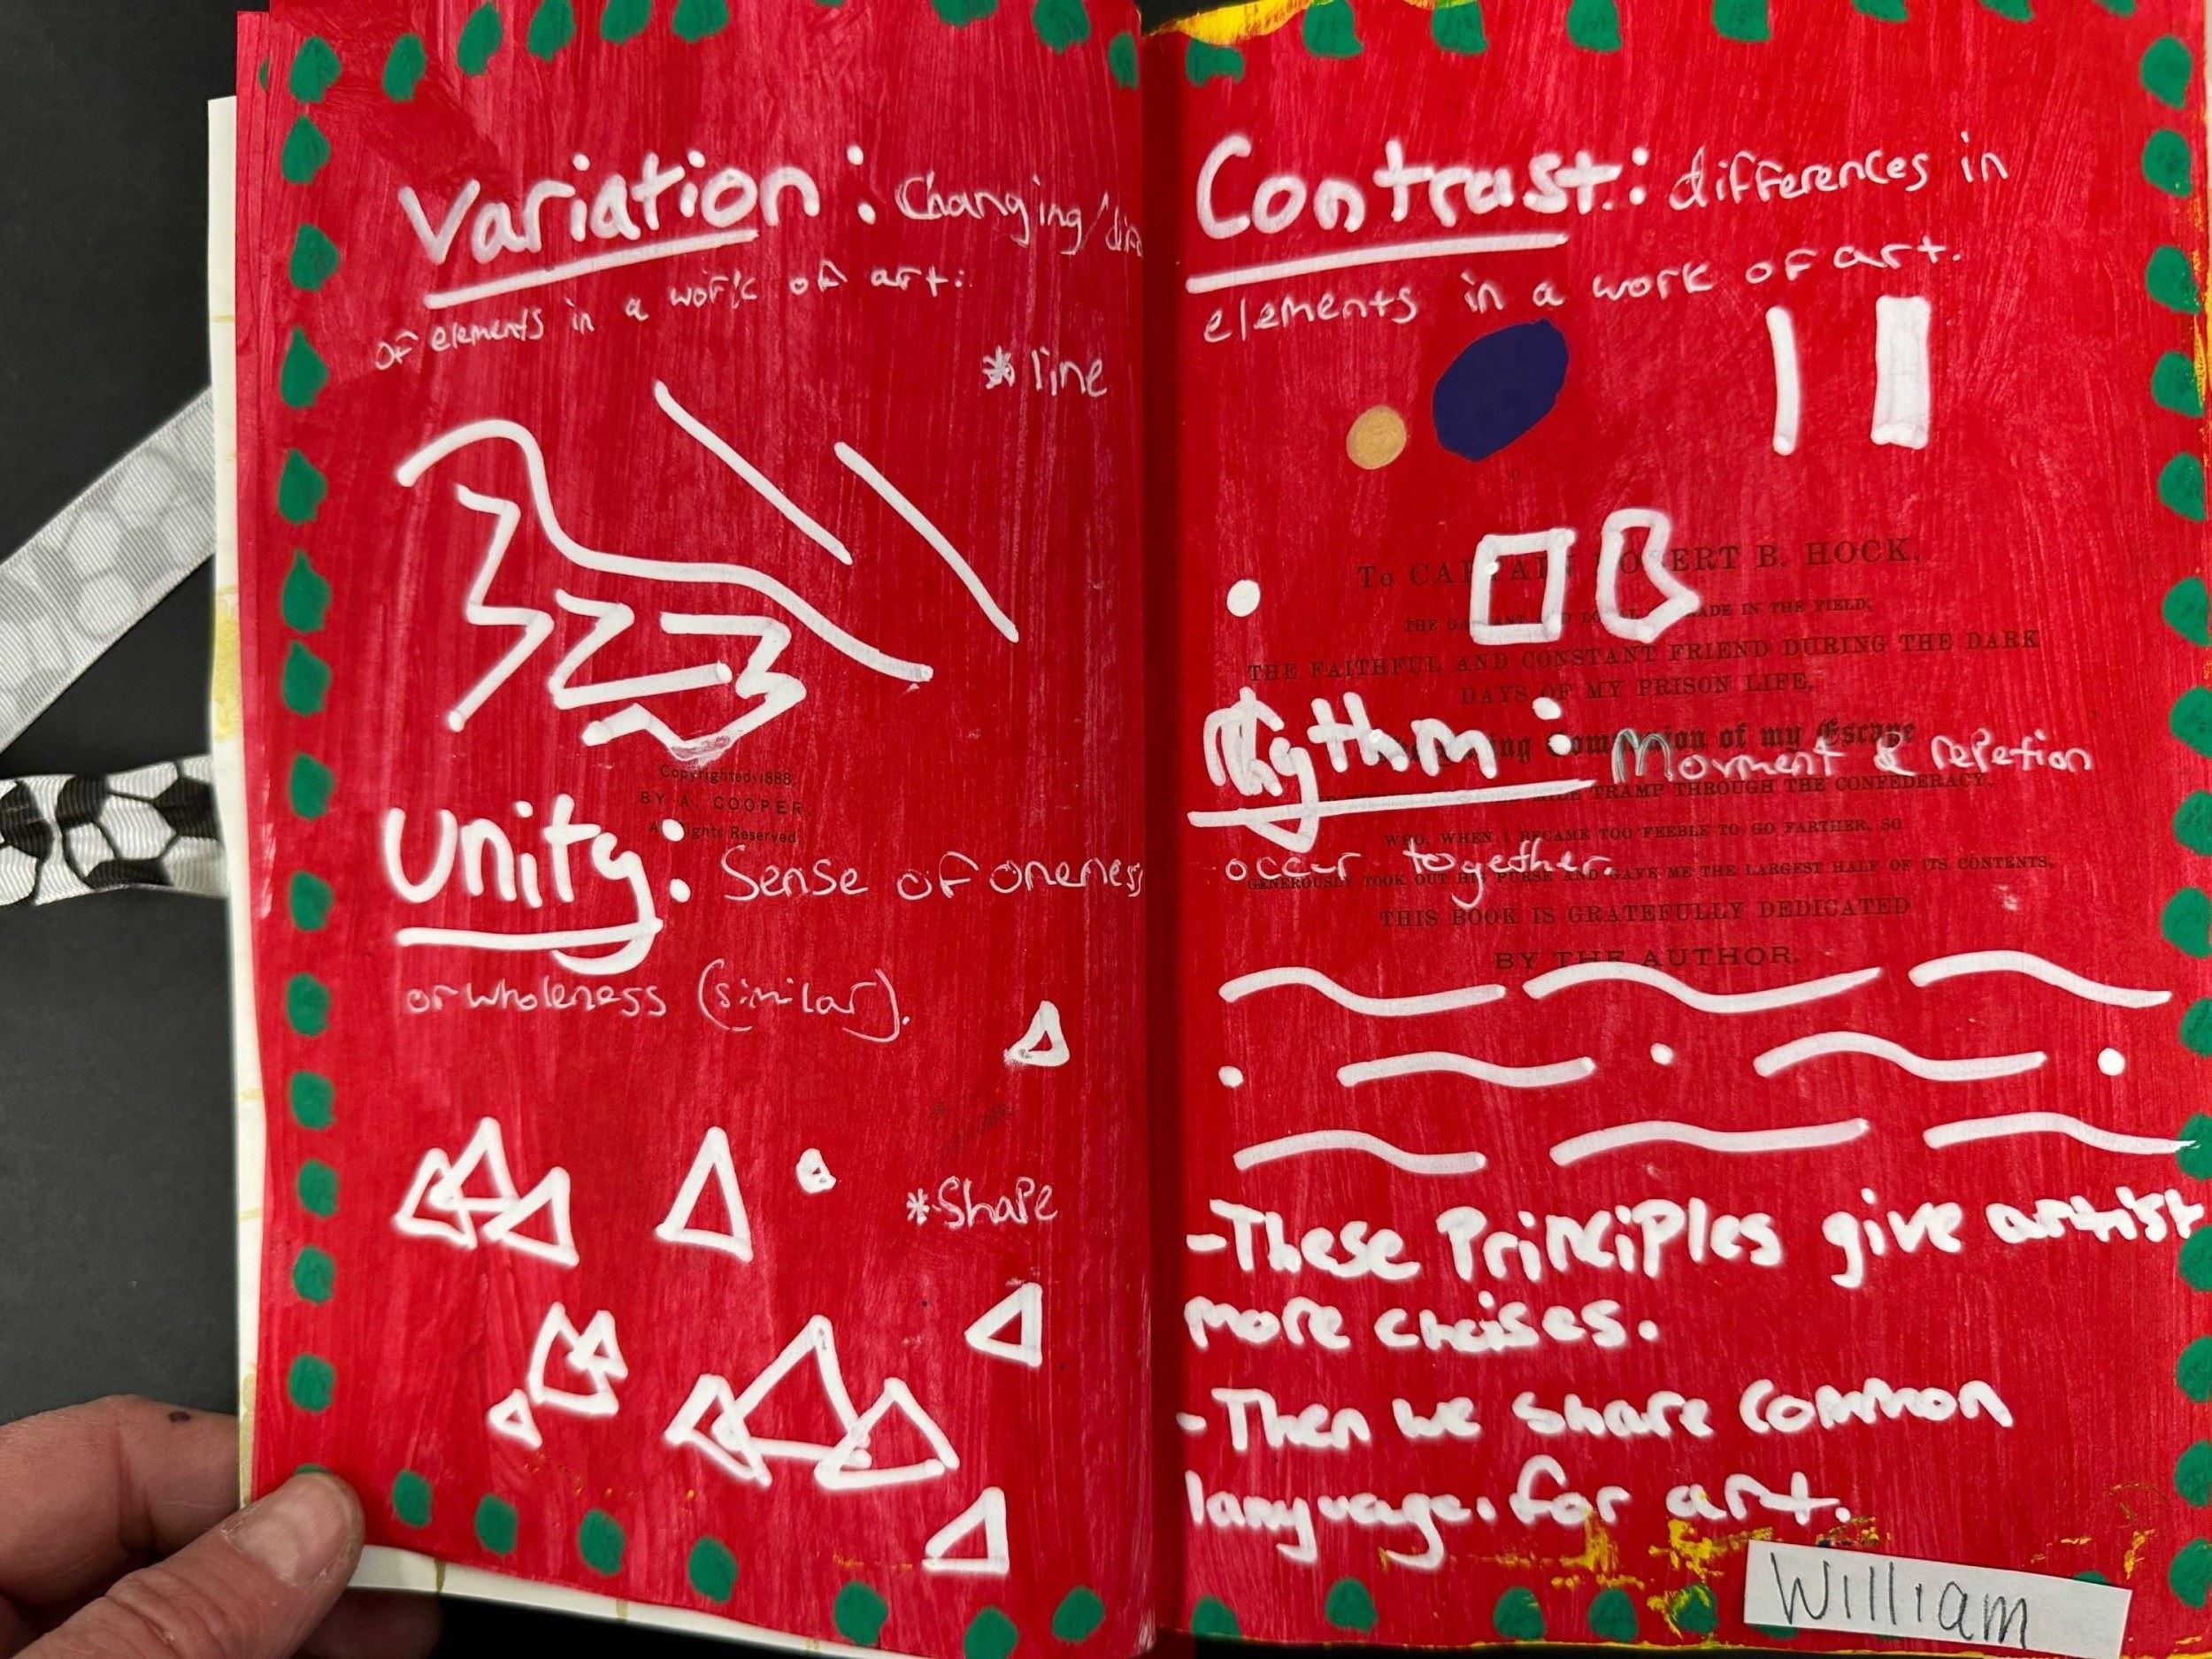 Variation: Changing/
of elements in a work of art.
*line
Copyrighted 1888,
BY A. COOPER
All Rights Reserved
Unity: Sense of oneness
or wholeness (similar).
*Shape
Contrast: differences in
elements in a work of art.
To CAPTAIN ROBERT B. HOCK,
THE FAITHFUL AND CONSTANT FRIEND DURING THE DARK
DAYS OF MY PRISON LIFE,
Companion of my Escape
Rhythm: Movment & repetion
TRAMP THROUGH THE CONFEDERACY,
WHO, WHEN I BECAME TOO FEEBLE TO GO FARTHER, SO
occur together.
GENEROUSLY TOOK OUT HIS PURSE AND GAVE ME THE LARGEST HALF OF ITS CONTENTS,
THIS BOOK IS GRATEFULLY DEDICATED
BY THE AUTHOR.
-These Principles give artist
more choises.
-Then we share common
language. for art.
William